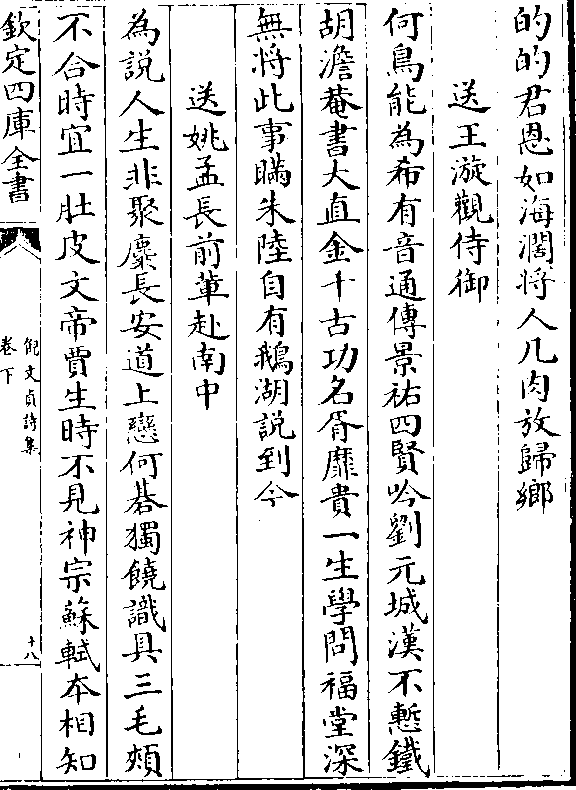 的的君恩如海濶將人几肉放歸鄉
送王漩觀侍御
何鳥能為希有音通傳景祐四賢吟劉元城漢不慙鐵
胡澹菴書大直金千古功名胥靡貴一生學問福堂深
無將此事瞞朱陸自有鵝湖説到今
送姚孟長前輩赴南中
為説人生非聚麋長安道上戀何碁獨饒識具三毛頰
不合時宜一肚皮文帝賈生時不見神宗蘇軾本相知
欽定四庫全書
倪文貞詩集
卷下
十八